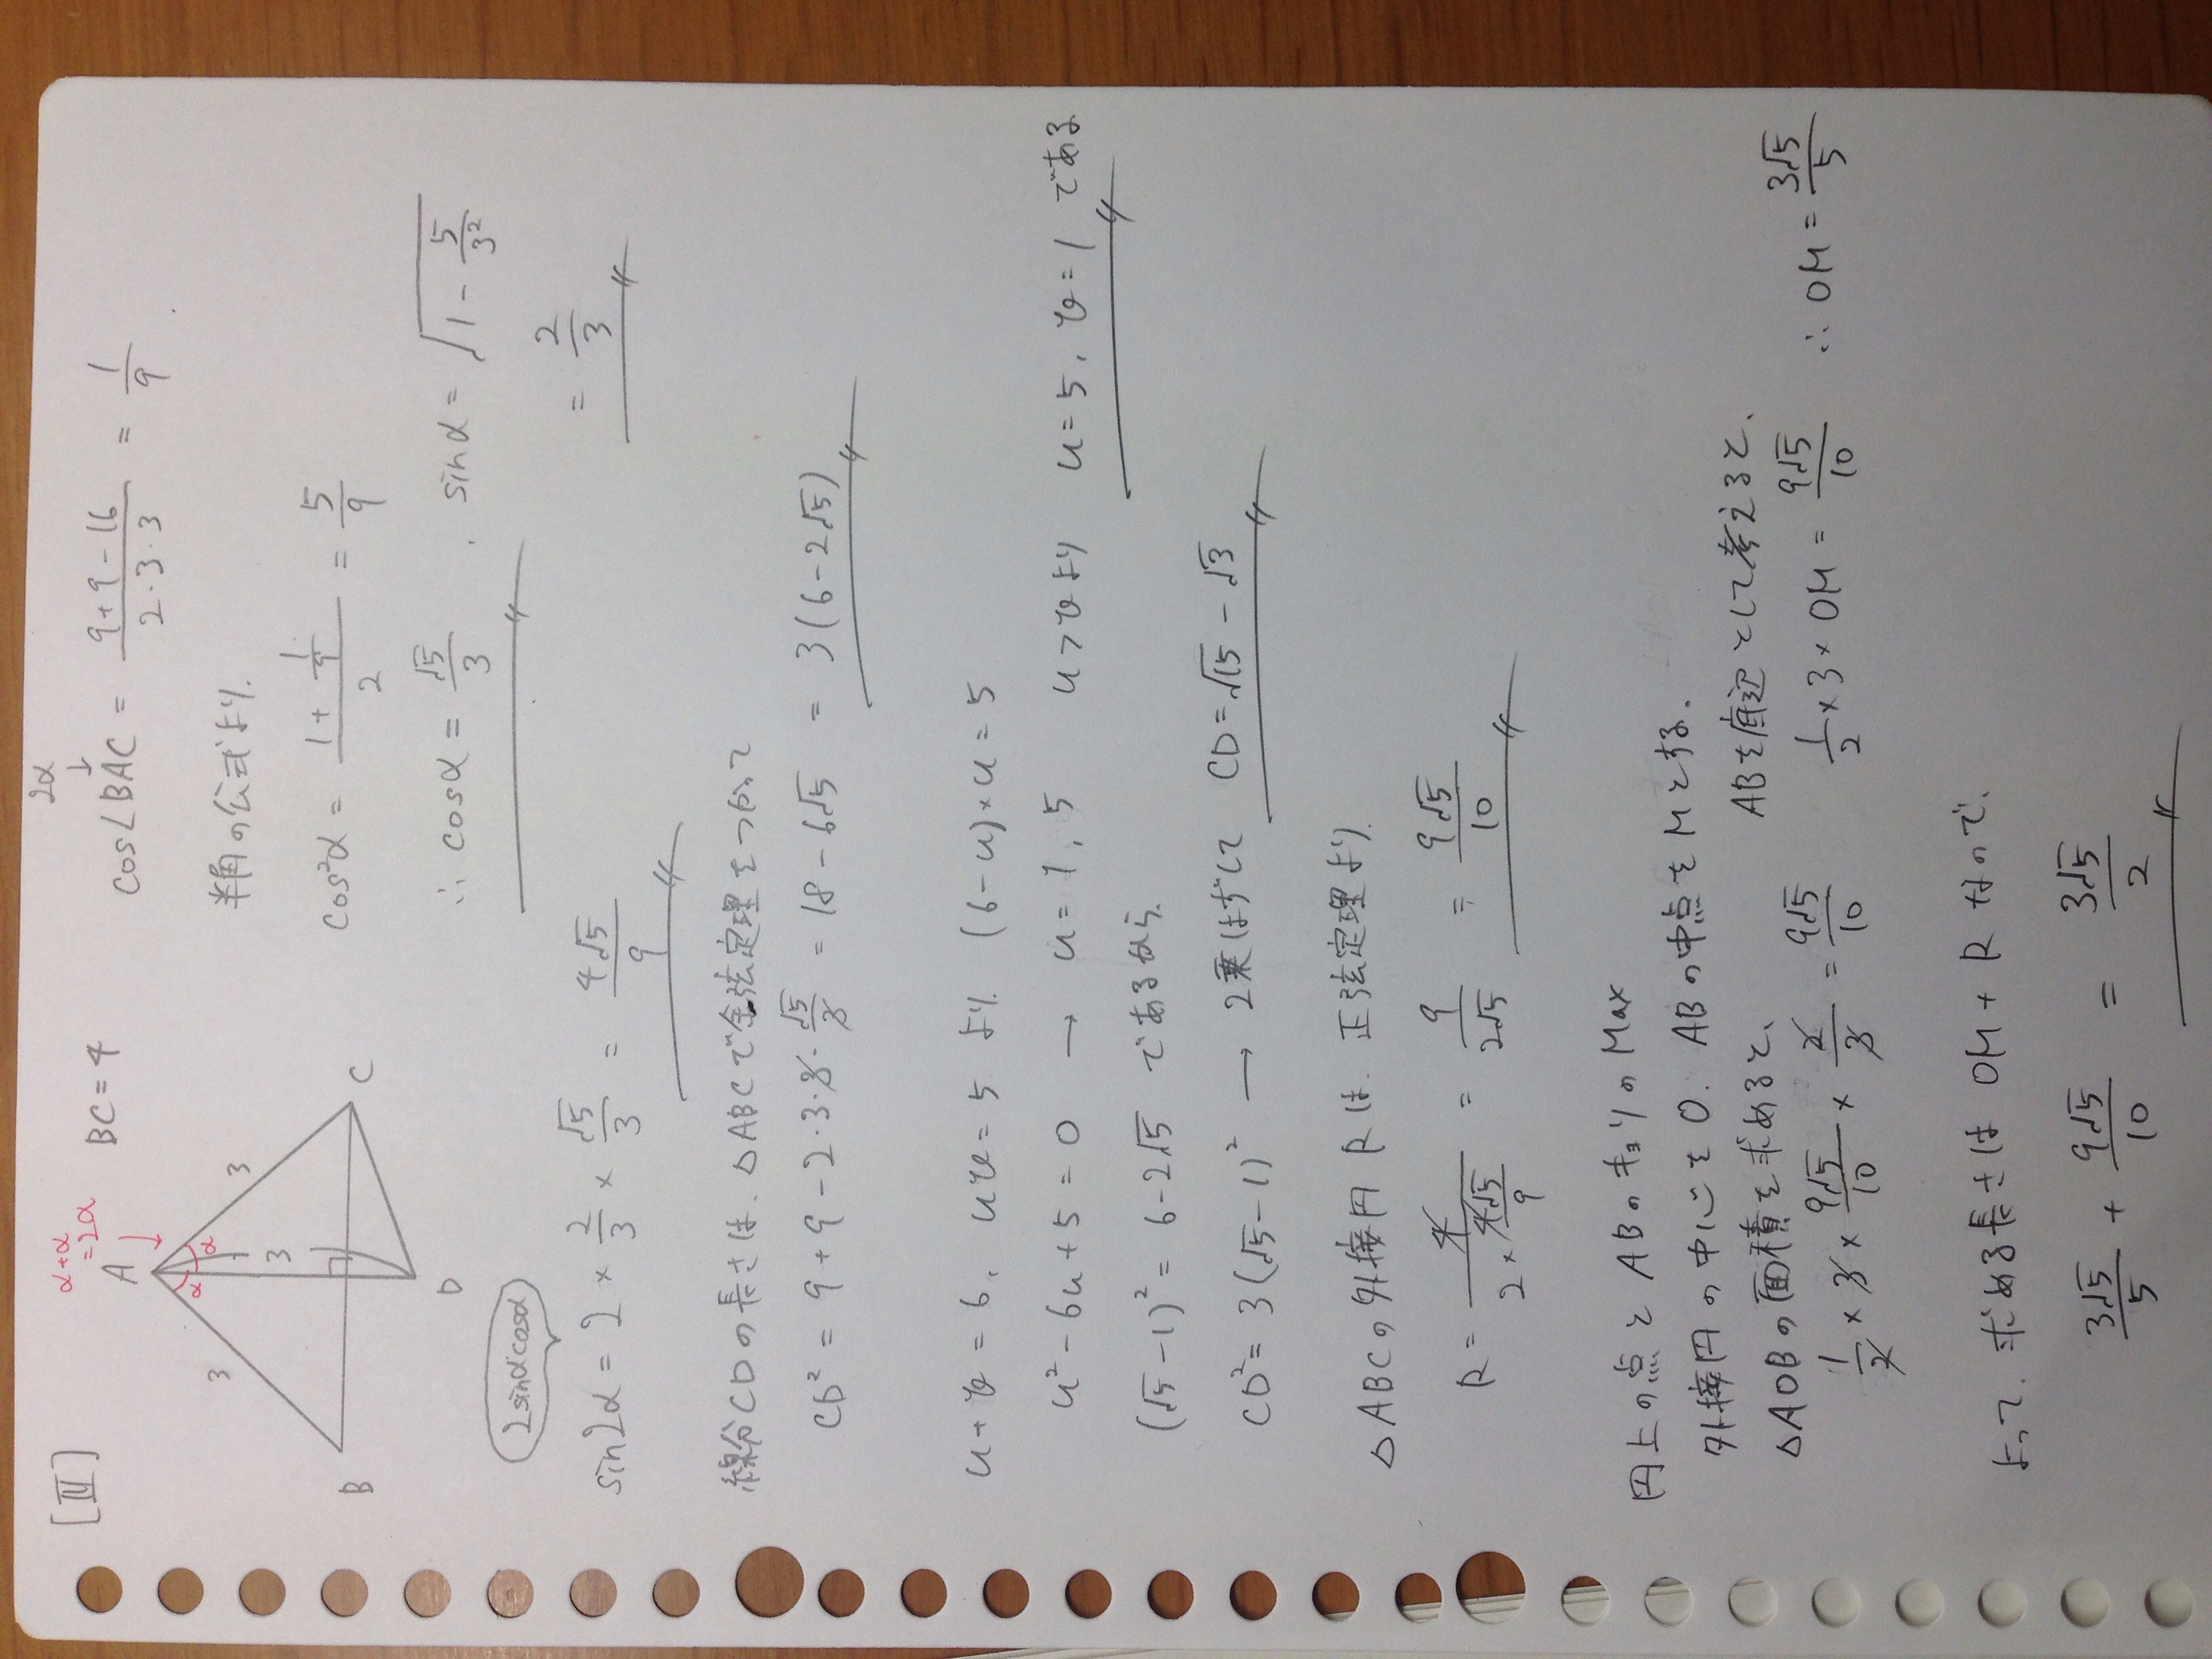 [Ⅲ]
BC=4
α+α
=2α
A
α
α
3
3
3
B
C
D
2α
↓
cos∠BAC = (9+9-16)/(2・3・3) = 1/9
半角の公式より.
cos²α = (1+1/9)/2 = 5/9
∴ cosα = √5/3 . sinα = √(1-5/3²)
= 2/3
2sinαcosα
sin2α = 2 × 2/3 × √5/3 = 4√5/9
線分CDの長さは、△ABCで余弦定理をつかって
CD² = 9+9-2・3・3・√5/3 = 18-6√5 = 3(6-2√5)
u+v=6, uv=5 より. (6-u)×u=5
u²-6u+5=0 → u=1,5 u>vより u=5, v=1である
(√5-1)²=6-2√5 であるから.
CD²=3(√5-1)² → 2乗はずして CD=√15-√3
△ABCの外接円Rは. 正弦定理より.
R = 4/(2×4√5/9) = 9/2√5 = 9√5/10
円上の点とABのキョリのMax
外接円の中心をO. ABの中点をMとする.
△AOBの面積を求めると、 ABを底辺として考えると、
1/2×3×9√5/10×2/3=9√5/10 1/2×3×OM=9√5/10 ∴OM=3√5/5
よって. 求める長さは OM+R なので.
3√5/5 + 9√5/10 = 3√5/2